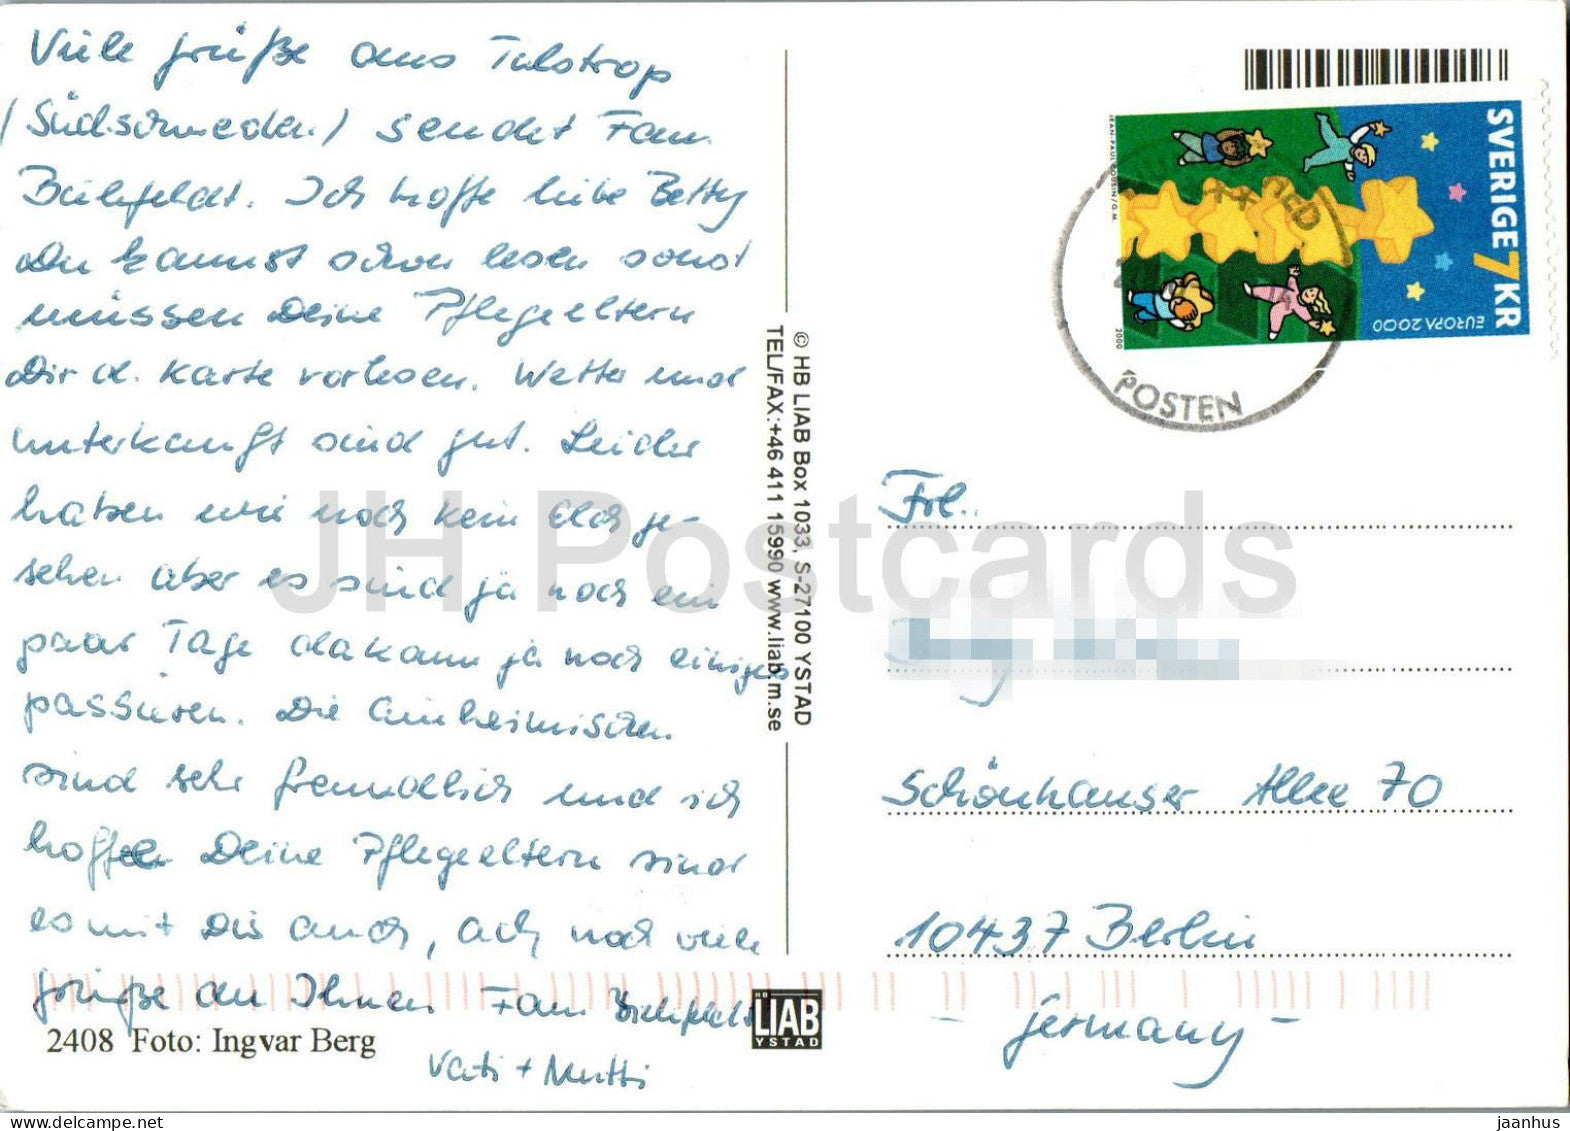 Viele Grüße aus Tulstrop
(Südschweden) sendet Fam.
Bielefeldt. Ich hoffe liebe Betty
Du kannst schon lesen sonst
müssen Deine Pflegeeltern
Dir d. Karte vorlesen. Wetter und
Unterkunft sind gut. Leider
haben wir noch kein Elch ge-
sehen aber es sind ja noch ein
paar Tage da kann ja noch einiges
passieren. Die Einheimischen
sind sehr freundlich und ich
hoffe Deine Pflegeeltern sind
es mit Dir auch, ach noch viele
Grüße an Ihnen Fam Bielefeldt
Vati + Mutti
2408 Foto: Ingvar Berg
© HB LIAB Box 1033, S-27100 YSTAD
TEL/FAX:+46 411 15990 www.liab.m.se
HB
LIAB
YSTAD
SVERIGE 7 KR
EUROPA 2000
JEAN-PAUL COUSIN/G.M.
2000
POSTEN
Frl.
Schönhauser Allee 70
10437 Berlin
- Germany -
JH Postcards
www.delcampe.net
jaanhus